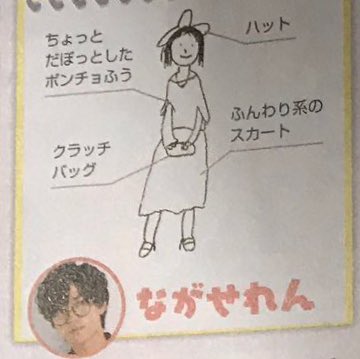 ハット
ちょっと
だぼっとした
ポンチョふう
ふんわり系の
スカート
クラッチ
バッグ
ながせれん